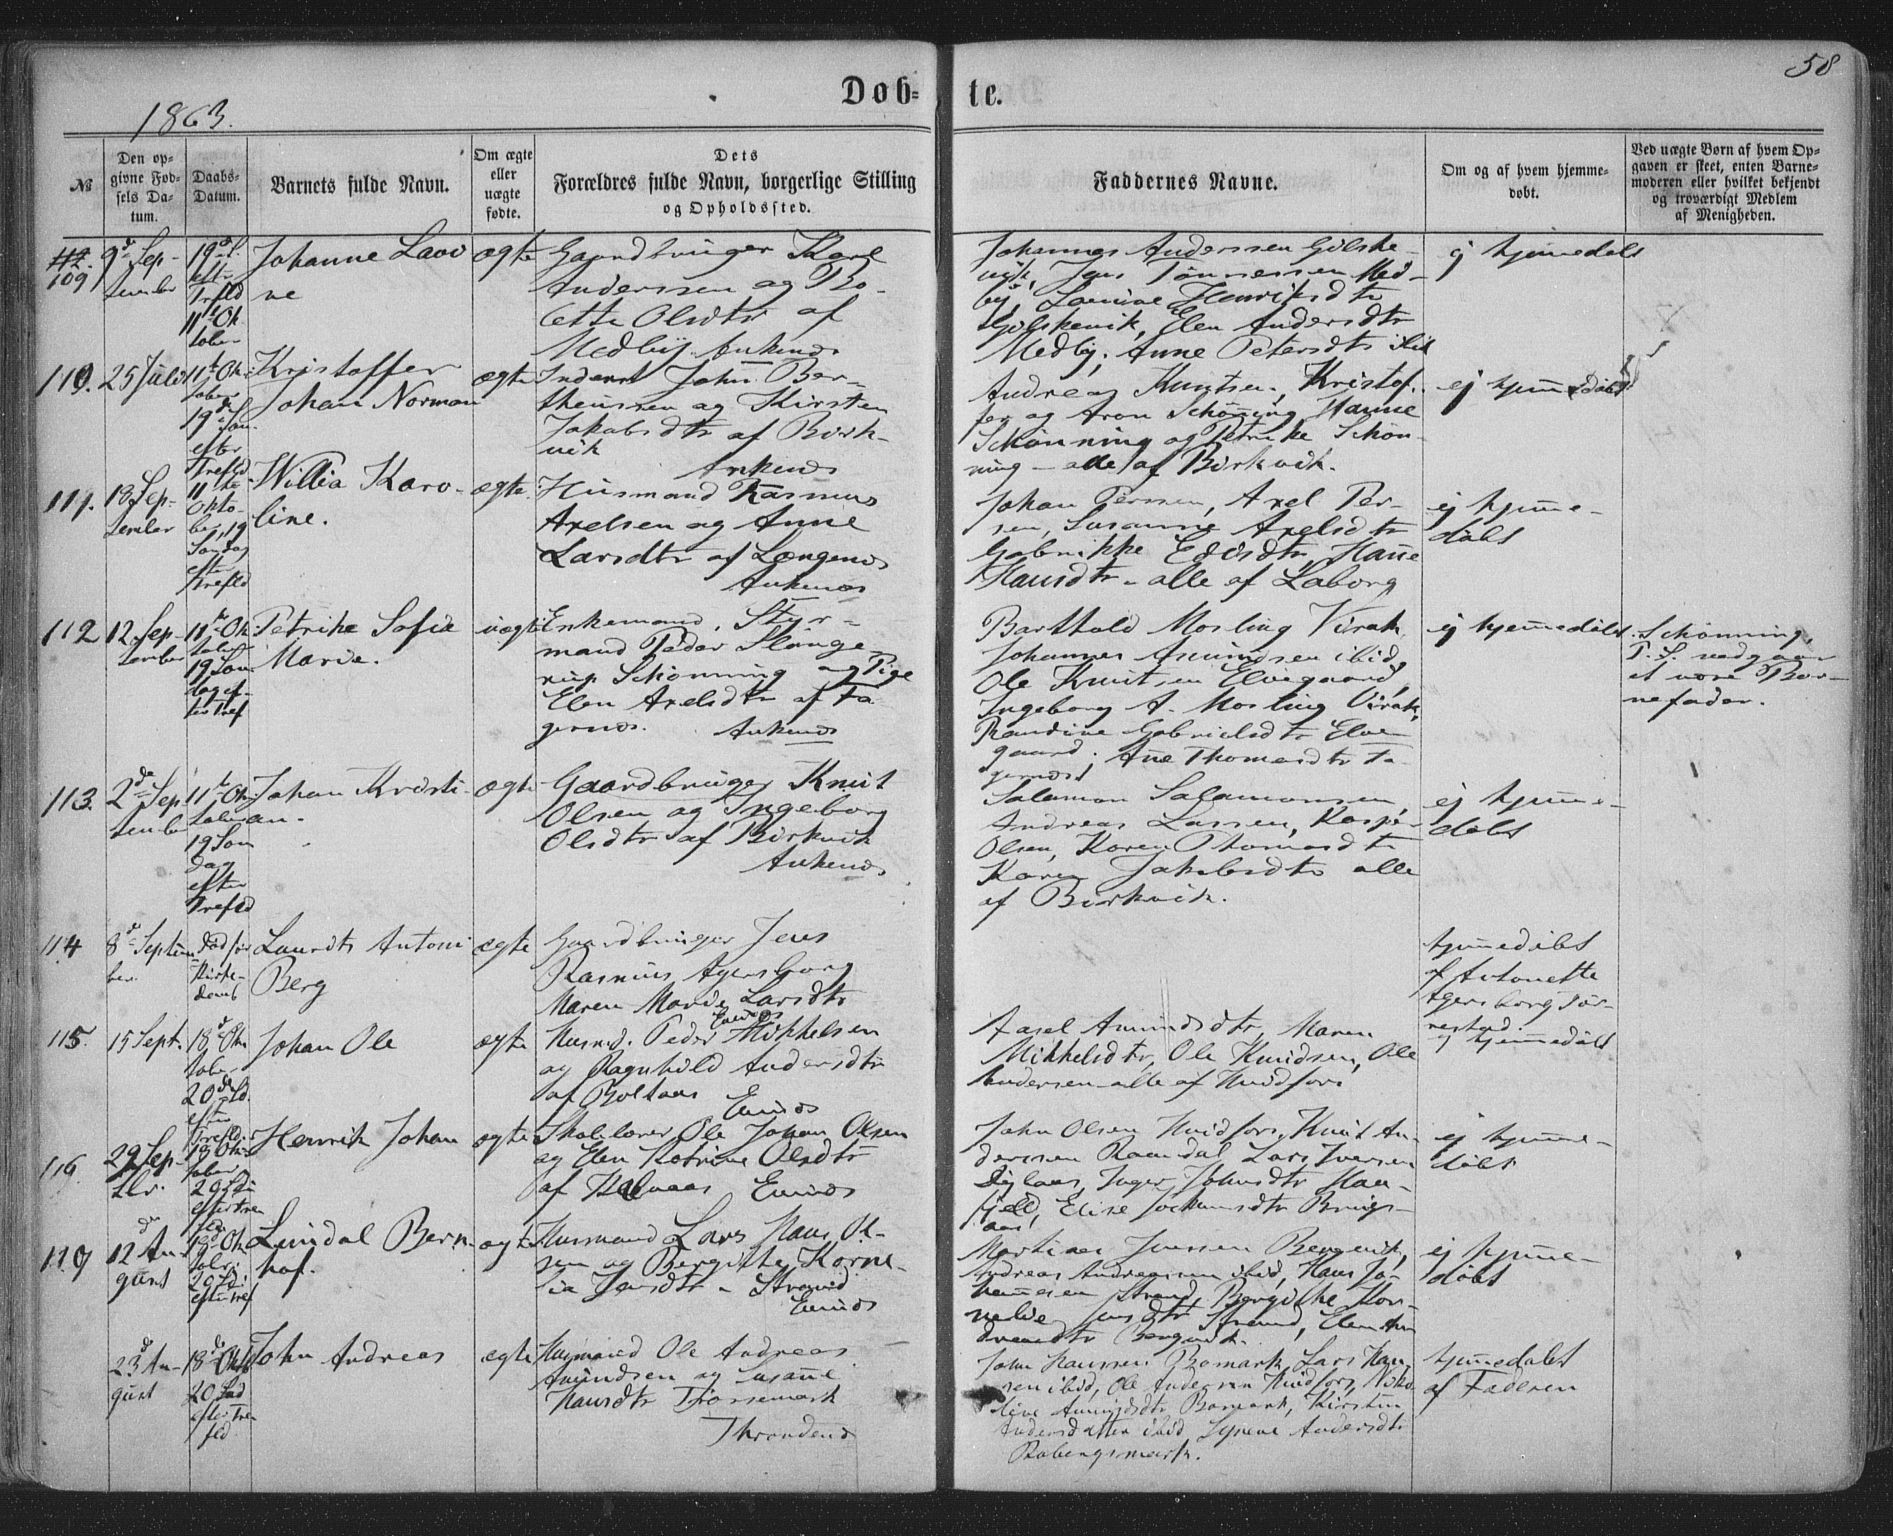 58
Døb=
te.
1863.
№
Den op=
givne Fød=
sels Da=
tum.
Daabs=
Datum.
Barnets fulde Navn.
Om ægte
eller
uægte
fødte.
Dets
Forældres fulde Navn, borgerlige Stilling
og Opholdssted.
Faddernes Navne.
Om og af hvem hjemme=
døbt.
Ved uægte Børn af hvem Op=
gaven er skeet, enten Barne=
moderen eller hvilket bekjendt
og troværdigt Medlem
af Menigheden.
109
9de Sep-
tember
19de S.
eftr
Trefld
11te Ok
tober
Johanne Lavi
ne
ægte
Gaardbruger Karl
Anderssen og Bo-
lette Olsdtr af
Medby. Ankenes
Johannes Anderssen Gölske-
vik, Jens Tönnessen Med-
by, Lavine Henriksdtr
Gölskevik, Elen Andersdtr
Medby, Anne Petersdtr ibid
ej hjemmedöbt
110.
25 Juli
11te Ok-
tober
19de Son.
efter
Trefld.
Kristoffer
Johan Norman
ægte
Inderst John Ber-
theussen og Kirsten
Jakobsdtr af Birk-
vik
Ankenes
Andreas Knutsen, Kristof-
fer og Aron Schönning, Hanne
Schönning og Petrike Schön-
ning - alle af Birkvik.
ej hjemmedöbt
111.
18 Sep-
tember
11te
Okto-
ber, 19
Sondag
eftr
Trefld
Willia Karo-
line.
ægte
Husmand Rasmus
Axelsen og Anne
Larsdtr af Længenes
Ankenes
Johan Persen, Axel Per-
sen, Susanne Axelsdtr
Gabrikke Edisdtr, Hanne
Hansdtr - alle af Laborg
ej hjemme-
döbt
112
12 Sep-
tember
11te Ok
tober
19 Son
dag ef-
ter Tref
Petrike Sofia
Marie.
uægte
Enkemand, Styr-
mand Peder Slange-
rup Schönning og Pige
Elen Axelsdtr af Fa-
gernes.
Ankenes
Barthold Mosling Virak,
Johannes Amundsen ibid,
Ole Knutsen Elvegaard,
Ingeborg A. Mosling Virak,
Randine Gabrielsdtr Elve-
gaard, Ane Thomasdtr Fa-
gernes
ej hjemmedöbt.
Schönning,
P. S. vedgaar
at være Bar-
nefader.
113.
2de Sep-
tember
11te Ok-
tober
19 Son
dag
efter
Trefld
Johan Kristi-
an.
ægte
Gaardbruger Knut
Olsen og Ingeborg
Olsdtr af Birkvik
Ankenes
Salamon Salamonsen,
Andreas Larssen, Kasper
Olsen, Karen Thomasdtr
Karen Jakobsdtr alle
af Birkvik.
ej hjemme-
döbt
114
8de Septem
ber.
död för
Kirke-
daab
Laurits Antoni
Berg
ægte
Gaardbruger Jens
Rasmus Agersborg
Maren Marie Larsdtr
Evenes
hjemmedöbt
af Antonette
Agersborg Tör-
restad.
115.
15 Sept.
18de Ok
tober
20de Sd.
efter
Trefld.
Johan Ole
ægte
Husmd. Peder Mikkelsen
og Ragnhild Andersdtr
af Boltaas
Evenes
Axsel Amundsdtr, Maren
Mikkelsdtr, Ole Knudsen, Ole
Andersen alle af Hvidfors
ej hjemmedöbt
116.
29 Sep-
tbr.
18 Ok-
tober
20 Sd
efter Tre
fld
Henrik Johan
ægte
Skolelærer Ole Johan Olsen
og Elen Katrine Olsdtr
af Kalvaas Evenes
John Olsen Hvidfors, Knut An-
dersen Ramdal, Lars Iversen
Dylaas, Inger Johnsdtr Hau-
fjeld, Elise Jochumsdtr Brings-
aas
ej hjemme-
döbt
119
12de Au-
gust
18de Ok
tober
20 Sd
efter Tref
Lundal Bern-
hof.
ægte
Husmand Lars Hans Ol-
sen og Bergitte Korne-
lia Jensdtr - Strand
Evenes
Martines Jenssen Bergvik,
Andreas Andreassen ibid, Hans Jo-
hannesen Strand, Bergithe Kor-
nelie Jensdtr Strand, Elen An
dreasdtr Bergvik.
ej hjemme-
döbt
23de Au-
gust
18de Oktb
20 Sd
efter Tre
fld
John Andreas
ægte
Husmand Ole Andreas
Amundsen og Susane
Hansdtr Trössemark
Throndenes
John Hanssen Bomark, Lars Han-
sen ibid, Ole Andersen Hvidfors, Niko
line Amundsdtr Bomark, Kirsten
Andersdatter ibid, Lyrene Andersdtr
Bobergsmark.
hjemmedöbt
af Faderen